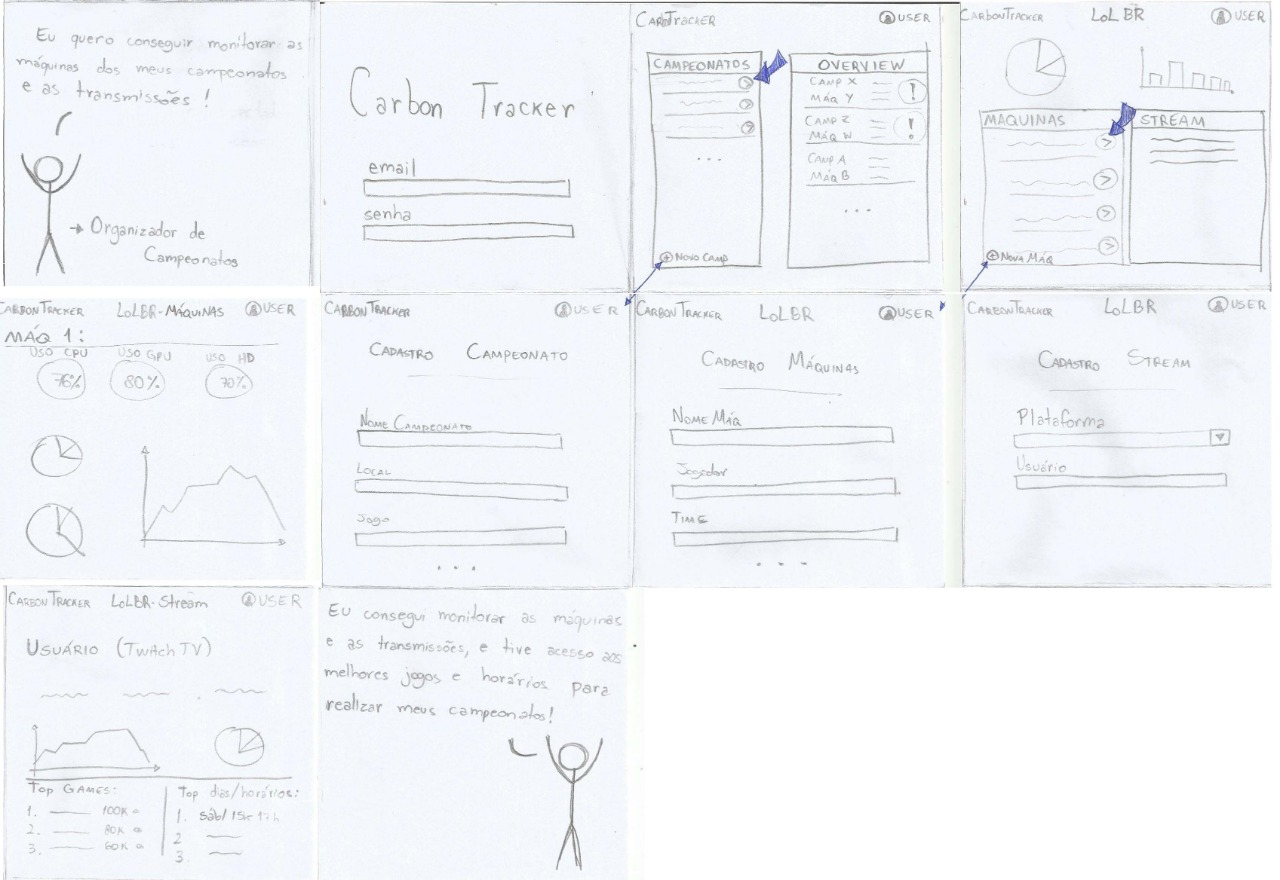 Eu quero conseguir monitorar as
máquinas dos meus campeonatos
e as transmissões!
→ Organizador de
Campeonatos
Carbon Tracker
email
senha
CarbonTracker
USER
CAMPEONATOS
+ Novo Camp
OVERVIEW
CAMP X
MÁQ Y
!
CAMP Z
MÁQ W
!
CAMP A
MÁQ B
...
...
CarbonTracker
LoL BR
USER
MÁQUINAS
+ Nova Máq
STREAM
CARBON TRACKER
LoLBR-MÁQUINAS
USER
MÁQ 1:
USO CPU
USO GPU
USO HD
76%
80%
70%
CARBON TRACKER
USER
CADASTRO CAMPEONATO
NOME CAMPEONATO
LOCAL
Jogo
...
CARBON TRACKER
LoLBR
USER
CADASTRO MÁQUINAS
NOME MÁQ
Jogador
TIME
...
CARBON TRACKER
LoLBR
USER
CADASTRO STREAM
Plataforma
Usuário
CARBON TRACKER
LoLBR-Stream
USER
USUÁRIO (TwitchTV)
Top GAMES:
1. 100K
2. 80K
3. 60K
Top dias/horários:
1. sáb/
2
3.
Eu consegui monitorar as máquinas
e as transmissões, e tive acesso aos
melhores jogos e horários para
realizar meus campeonatos!